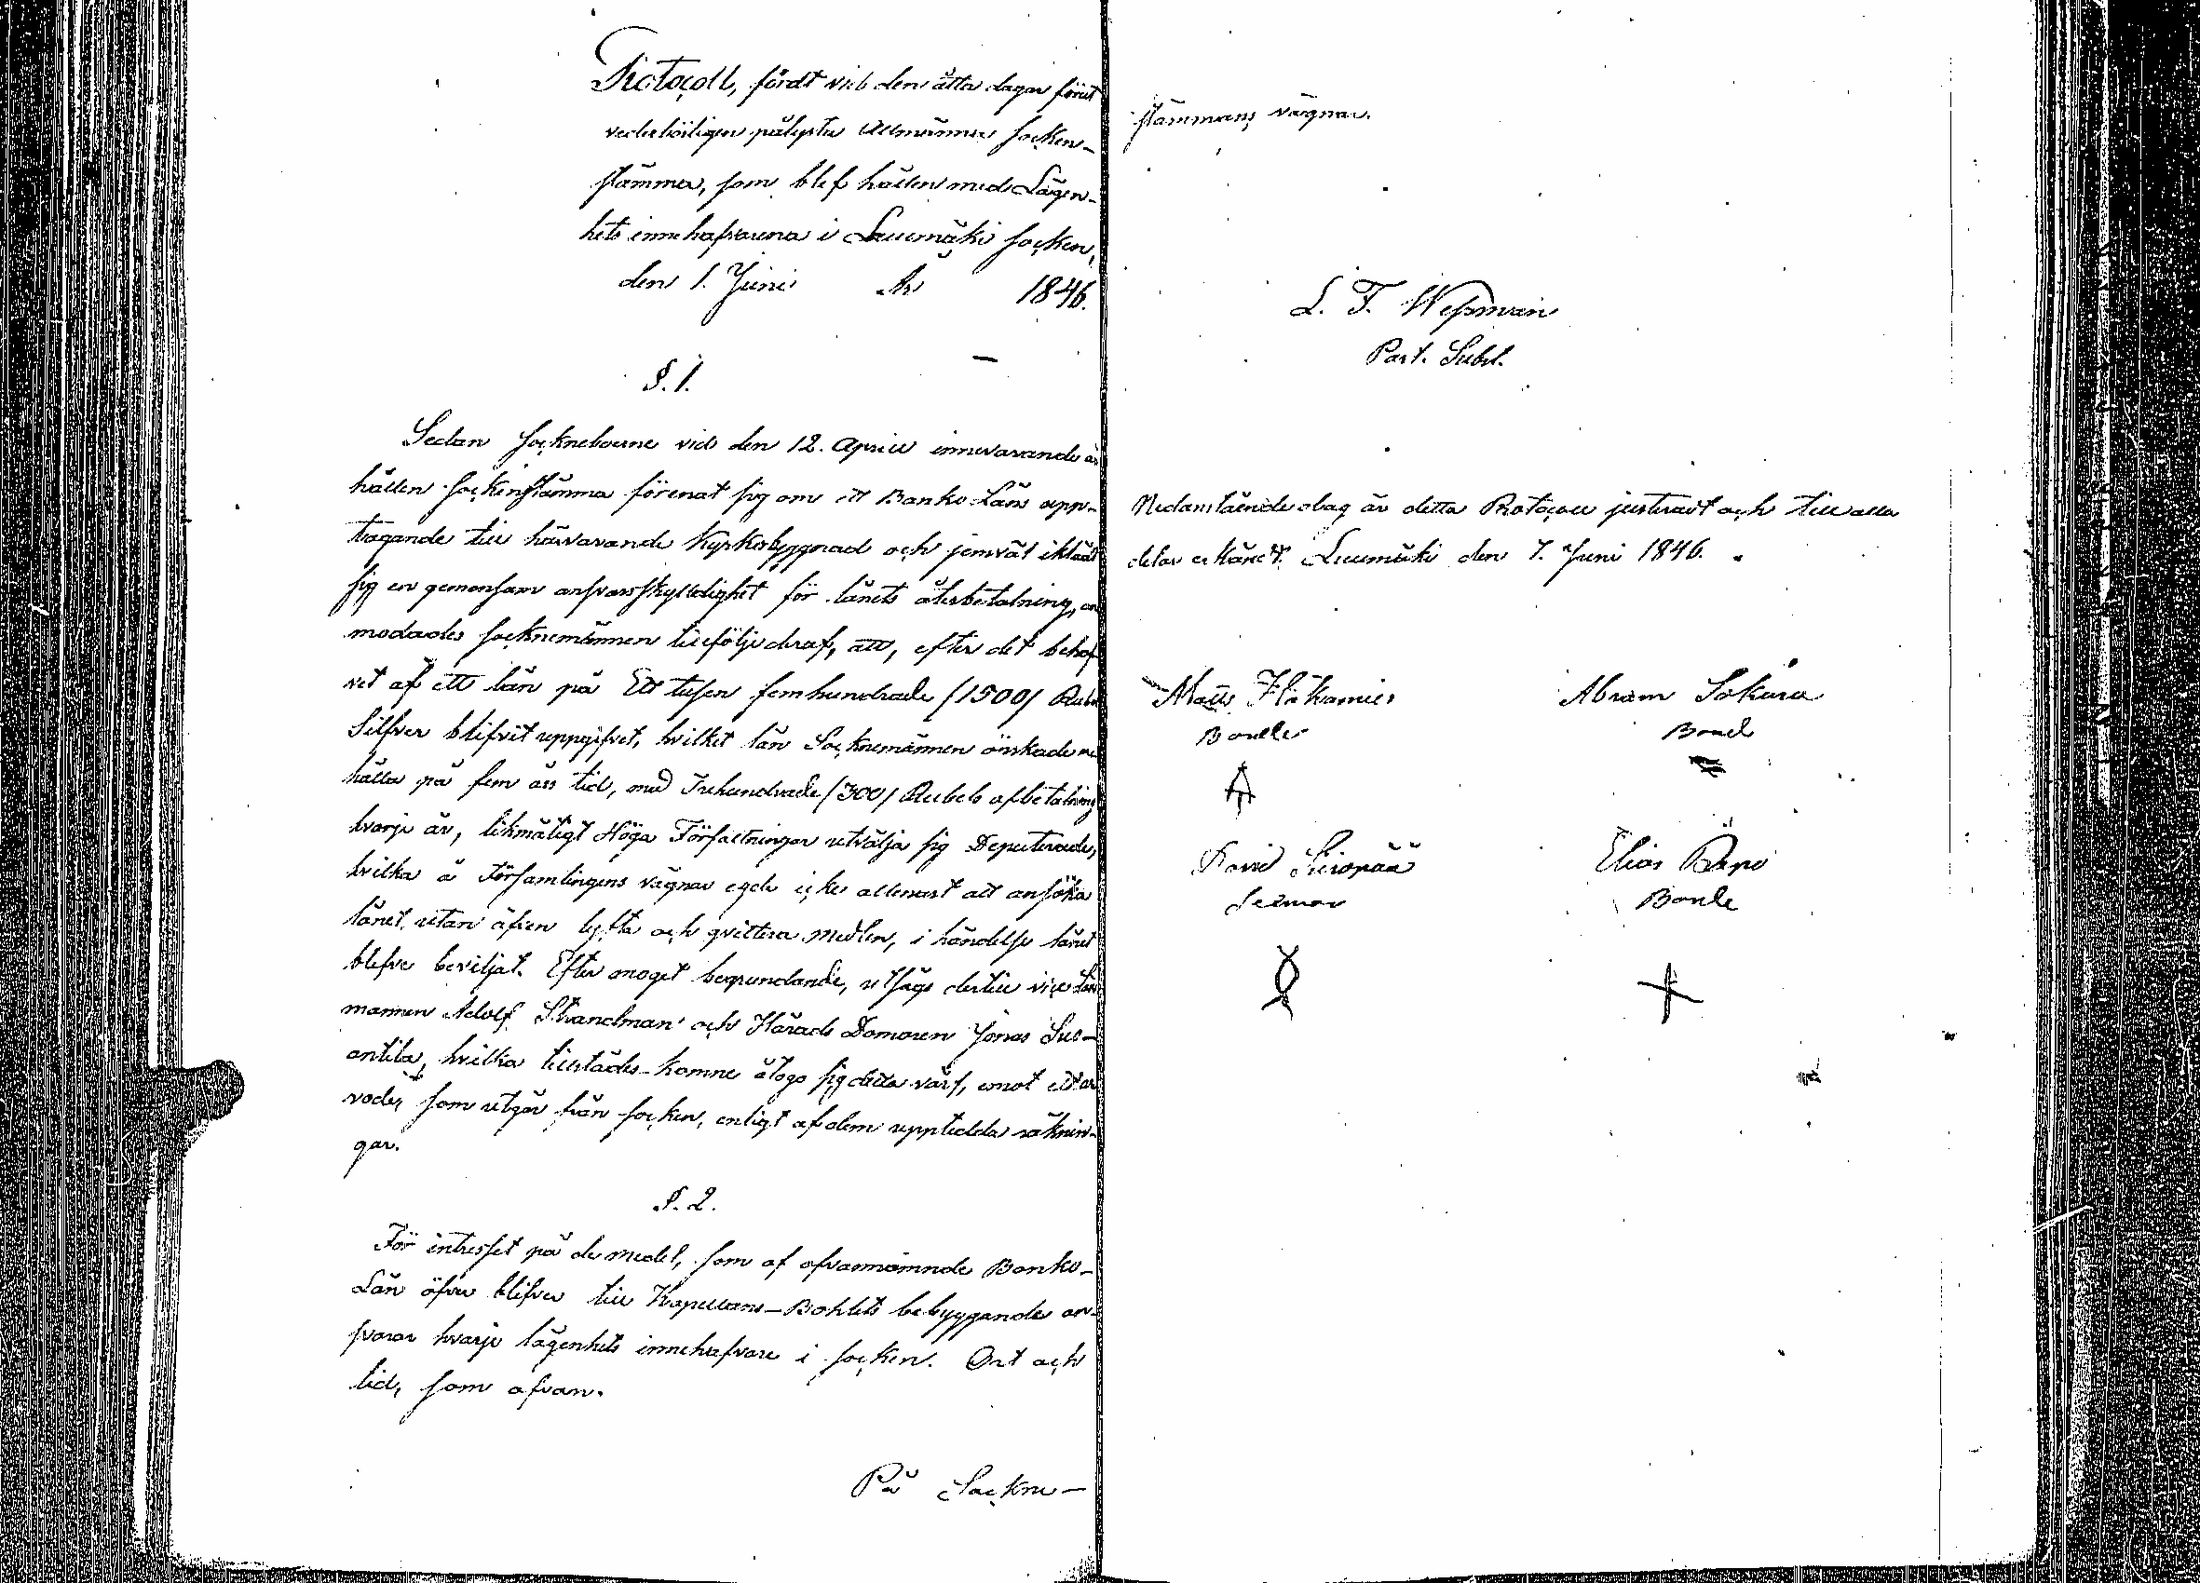 Protocoll, fördt vid den åtta dagar förut
vederbörligen pålysta allmänna socken-
stämma, som blef hållen med Lägen-
hets innehafvarna i Luumäki socken,
den 1. Juni År 1846.
§. 1.
Sedan socknеboerne vid den 12. April innevarande år
hållen sockenstämma förenat sig om ett Banko Låns upp-
tagande till härvarande Kyrkobyggnad och jemväl iklädt
sig en gemensam ansvarsskyldighet för lånets återbetalning, an-
modades socknemännen tillfölje deraf, att, efter det behof-
vet af ett lån på Ett tusen femhundrade /1500/ Rubel
Silfver blifvit uppgifvet, hvilket lån Socknemännen önskade
hålla på fem års tid, med Trehundrade /300/ Rubels afbetalning
hvarje år, likmätigt Höga Författningar utvälja sig Deputerade,
hvilka å Församlingens vägnar egde icke allenast att ansöka
lånet, utan äfven lyfta och qvittera medlen, i händelse lånet
blefve beviljat. Efter moget begrundande, utsågs dertill vice Läns
mannen Adolf Strandman och Härads Domaren Jonas Suo-
antila, hvilka tillstädes-komne åtogo sig detta värf, emot ett ar
vode, som utgår från socken, enligt af dem uppteedda räknin-
gar.
§. 2.
För intresset på de medel, som af ofvannämnde Banko-
Lån öfver blifver till Kapellans-Bohlets bebyggande an-
svarar hvarje lägenhets innehafvare i socken. Ort och
tid, som ofvan.
På Sockne-
stämmans vägnar.
L. F. Wessman
Past. Subst.
Nedanstående dag är detta Protocoll justeradt och till alla
delar erkändt. Luumäki den 7. Juni 1846.
Matts Häkämies Abram Sakara
Bonde Bonde
David Suopää Elias Repo
Bonde